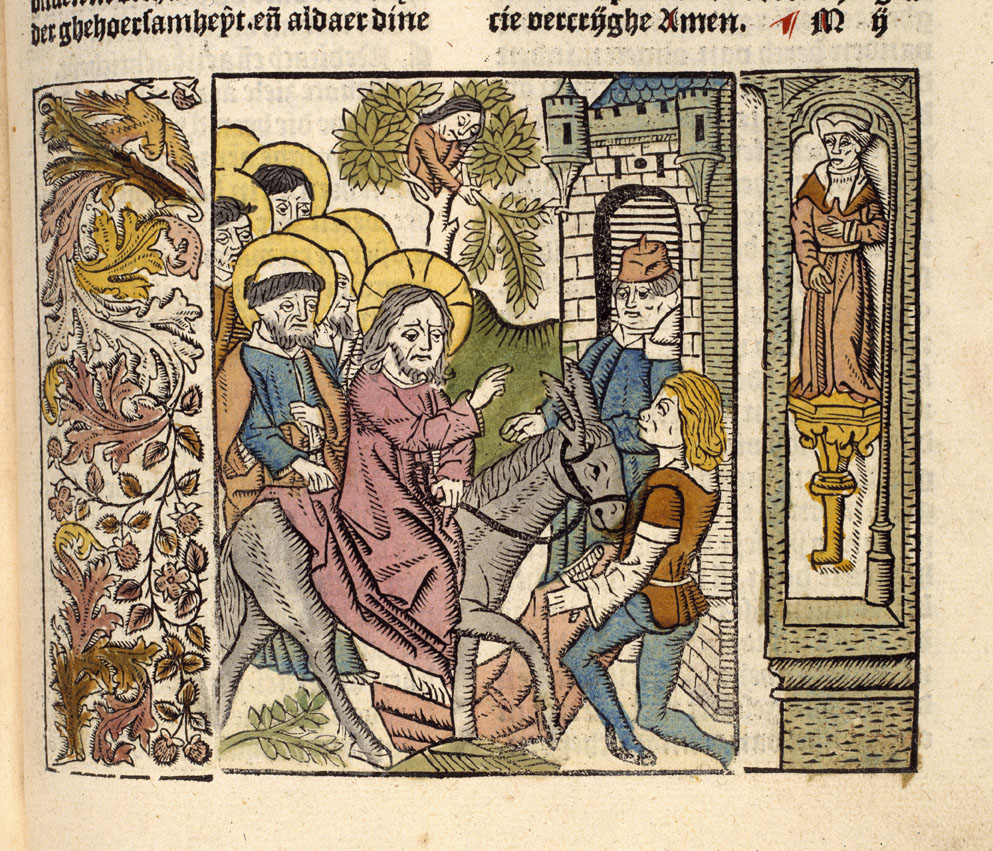 der ghehoersamheyt.en̄ aldaer dine
rie vercrijghe Amen. M ij